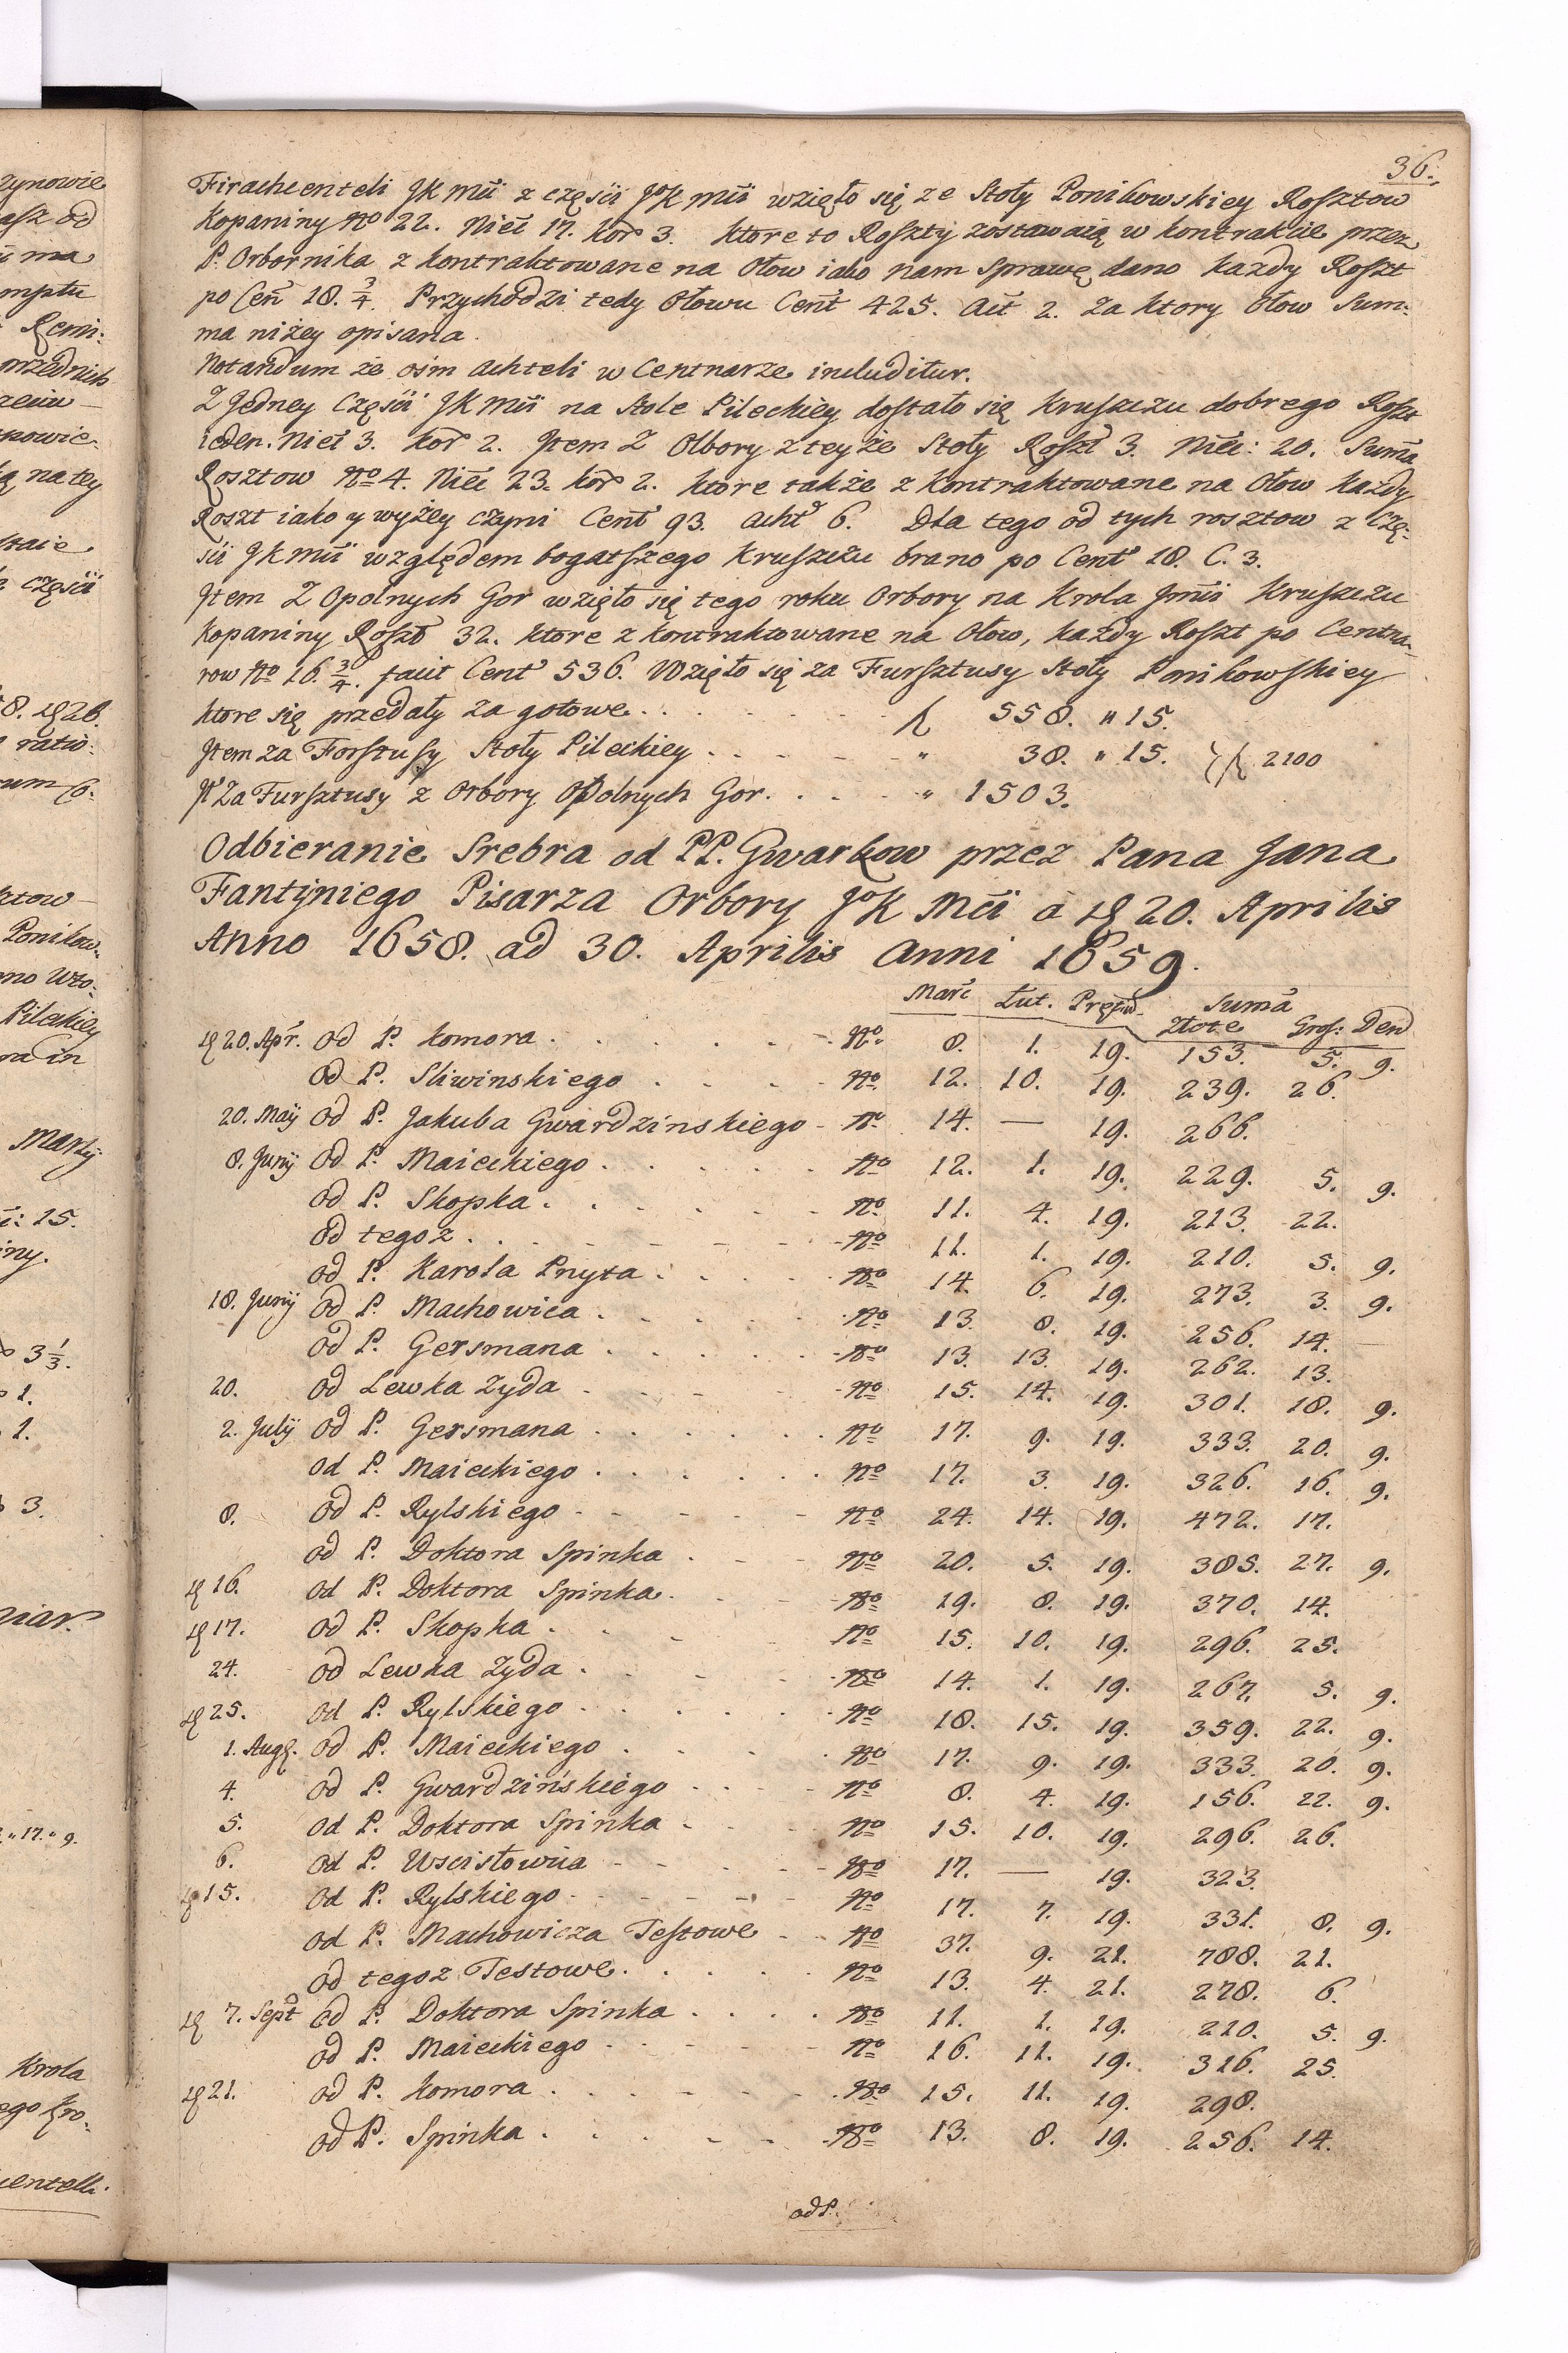 36.
Firachcenteli JK Mći z częśći JoK Mći wzięło się ze Stoły Ponikowskiey Rosztow
Kopaniny No 22. Nieć 17. Kor 3. Ktore to Roszty zostawaią w kontrakcie przez
P. Orbornika z kontraktowane na Ołow iako nam Sprawę dano każdy Roszt
po Cen̄ 18. 3/4. Przychodzi tedy Ołowu Cent̄ 425. Act̄ 2. Za ktory Ołow Sum:
ma niżey opisana.
Notandum że ośm Achteli w Centnarze includitur.
Z Jedney Częśći JK Mći na Stole Pileckiey dostało się Kruszczu dobrego Roszt
ieden. Nieć 3. Kor 2. Jtem Z Olbory z teyże Stoły Roszt 3. Niec: 20. Sum̄a
Rosztow No 4. Niec 23. Kor 2. Ktore także z Kontraktowane na Ołow Każdy
Roszt iako y wyżey czyni Cent 93. Acht 6. Dla tego od tych rosztow z Czę:
śći JK Mći względem bogatszego Kruszczu brano po Cent 18. C. 3.
Jtem Z Opolnych Gor wzięło się tego roku Orbory na Krola Jmći Kruszczu
Kopaniny Roszt 32. ktore z kontraktowane na Ołow, każdy Roszt po Centna-
row No 16. 3/4. facit Cent 536. Wzięło się za Fursztusy Stoły Ponikowskiey
ktore się przedały za gotowe . . . . . . . 558. " 15.
Jtem za Forsztusy Stoły Pileckiey . . . . - " 38. " 15. 2100
Jt Za Fursztusy z Orbory Opolnych Gor. . . . . " 1503.
Odbieranie Srebra od PP. Gwarkow przez Pana Jana
Fantyniego Pisarza Orbory JoK Mći á 20. Aprilis
Anno 1658. ad 30. Aprilis Anni 1659.
Marć Łut. Sum̄a
Złote Gros: Den
20. Apr. Od P. Komora . . . . . No 8. 1. 19. 153. 5. 9.
Od P. Sliwinskiego . . . . No 12. 10. 19. 239. 26.
20. Maÿ Od P. Jakuba Gwardzinskiego - No 14. — 19. 266.
8. Junÿ Od P. Maieckiego . . . . . No 12. 1. 19. 229. 5. 9.
od P. Skopka . . . . . . No 11. 4. 19. 213. 22.
Od tegoz . . . - - - No 11. 1. 19. 210. 5. 9.
od P. Karola Pnyta . . . . No 14. 6. 19. 273. 3. 9.
18. Junÿ Od P. Machowica . . . . . No 13. 8. 19. 256. 14. —
od P. Gersmana . . . . . No 13. 13. 19. 262. 13.
20. Od Lewka Zyda . . . . No 15. 14. 19. 301. 18. 9.
2. Julÿ Od P. Gersmana . . . . . . No 17. 9. 19. 333. 20. 9.
od P. Maieckiego . . . . . . No 17. 3. 19. 326. 16. 9.
8. Od P. Rylskiego - - - - - No 24. 14. 19. 472. 17.
od P. Doktora Spinka . . . No 20. 5. 19. 385. 27. 9.
16. od P. Doktora Spinka . . . No 19. 8. 19. 370. 14.
17. od P. Skopka . . . . . No 15. 10. 19. 296. 25.
24. od Lewka Zyda . . . . . No 14. 1. 19. 267. 5. 9.
25. od P. Rylskiego . . . . . No 18. 15. 19. 359. 22. 9.
1. Aug. Od P. Maieckiego . . . . No 17. 9. 19. 333. 20. 9.
4. Od P. Gwardzińskiego . . . . No 8. 4. 19. 156. 22. 9.
5. od P. Doktora Spinka - - - No 15. 10. 19. 296. 26.
6. od P. Wscisłowica - - - - No 17. — 19. 323.
15. Od P. Rylskiego - - - - - No 17. 7. 19. 331. 8. 9.
od P. Machowicza Testowe - - No 37. 9. 21. 788. 21.
od tegoz Testowe . . . . . No 13. 4. 21. 278. 6.
7. Sept od P. Doktora Spinka . . . . No 11. 1. 19. 210. 5. 9.
od P. Maieckiego . . . . . No 16. 11. 19. 316. 25.
21. od P. Komora . . . . . No 15. 11. 19. 298.
Od P. Spinka . . . . . No 13. 8. 19. 256. 14.
od P.